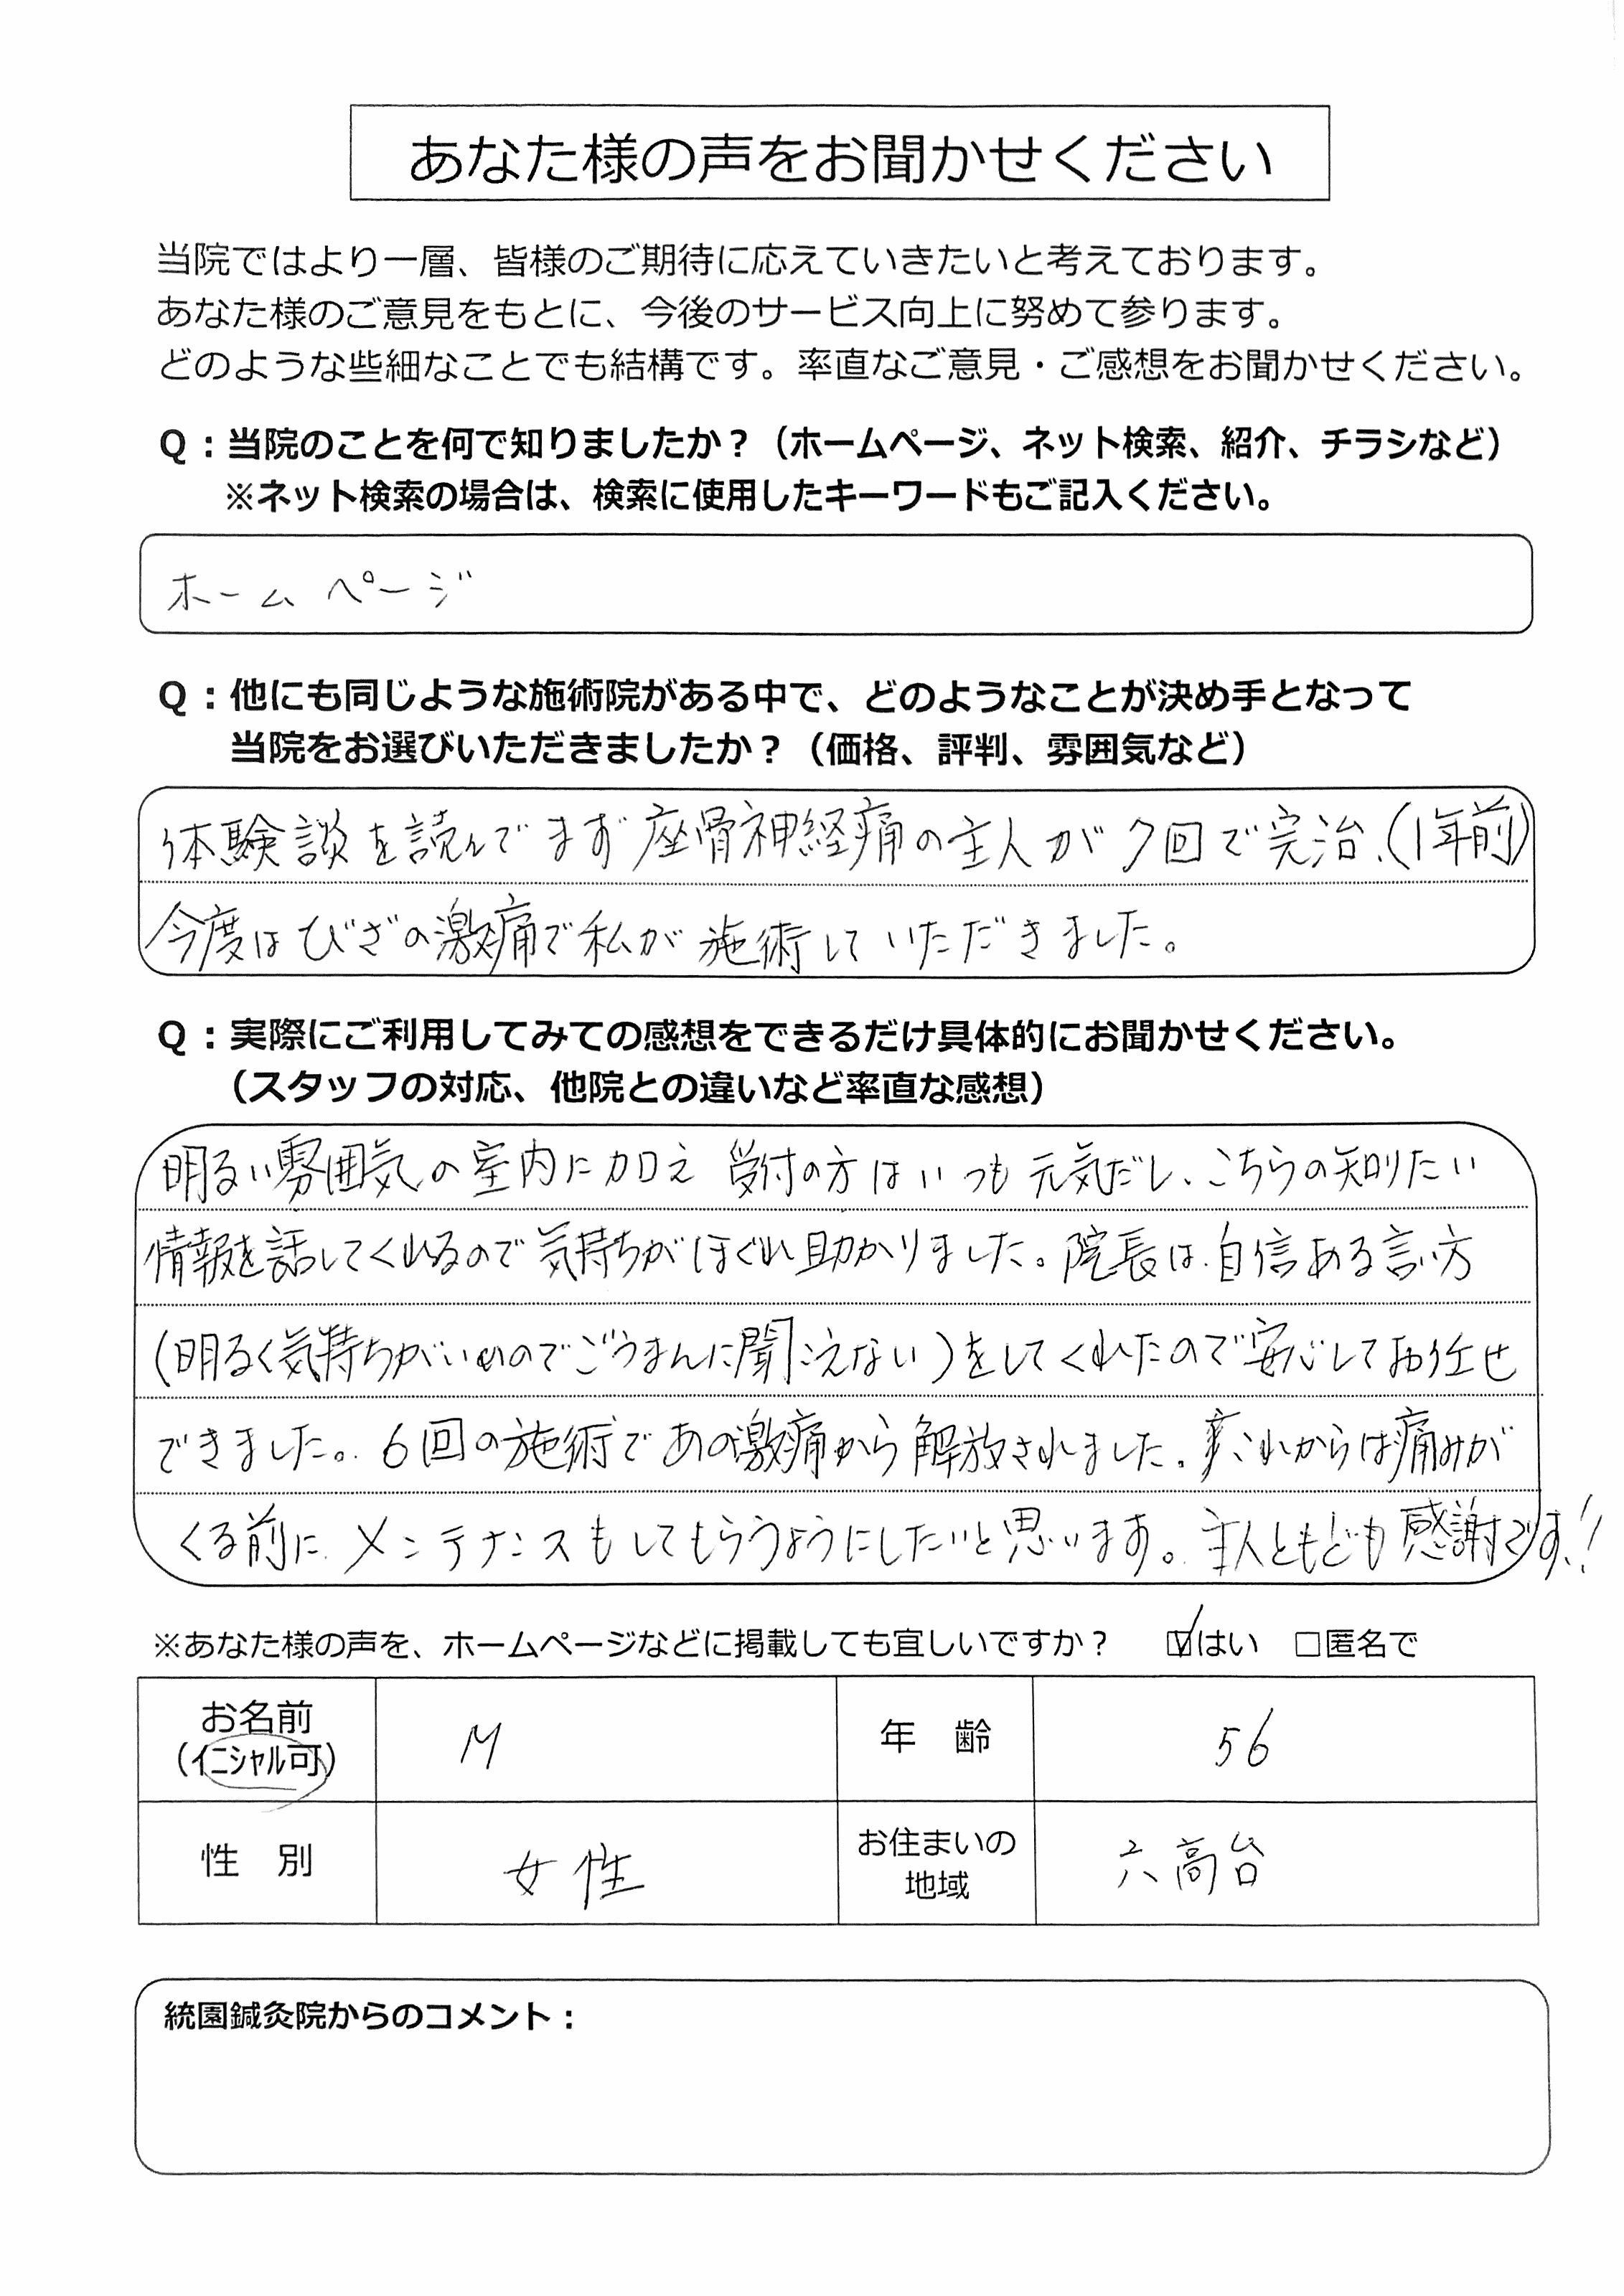 あなた様の声をお聞かせください
当院ではより一層、皆様のご期待に応えていきたいと考えております。
あなた様のご意見をもとに、今後のサービス向上に努めて参ります。
どのような些細なことでも結構です。率直なご意見・ご感想をお聞かせください。
Q：当院のことを何で知りましたか？（ホームページ、ネット検索、紹介、チラシなど）
※ネット検索の場合は、検索に使用したキーワードもご記入ください。
ホームページ
Q：他にも同じような施術院がある中で、どのようなことが決め手となって
当院をお選びいただきましたか？（価格、評判、雰囲気など）
体験談を読んでまず座骨神経痛の主人が7回で完治、（1年前）
今度はひざの激痛で私が施術していただきました。
Q：実際にご利用してみての感想をできるだけ具体的にお聞かせください。
（スタッフの対応、他院との違いなど率直な感想）
明るい雰囲気の室内に加え 受付の方はいつも元気だし、こちらの知りたい
情報を話してくれるので気持ちがほぐれ助かりました。院長は、自信ある言い方
（明るく気持ちがいいのでごうまんに聞こえない）をしてくれたので安心してお任せ
できました。6回の施術であの激痛から解放されました。これからは痛みが
くる前に、メンテナンスもしてもらうようにしたいと思います。主人ともども感謝です!!
※あなた様の声を、ホームページなどに掲載しても宜しいですか？ ☑はい □匿名で
お名前 M 年 齢 56
（イニシャル可）
性 別 女性 お住まいの 六高台
地域
統園鍼灸院からのコメント：